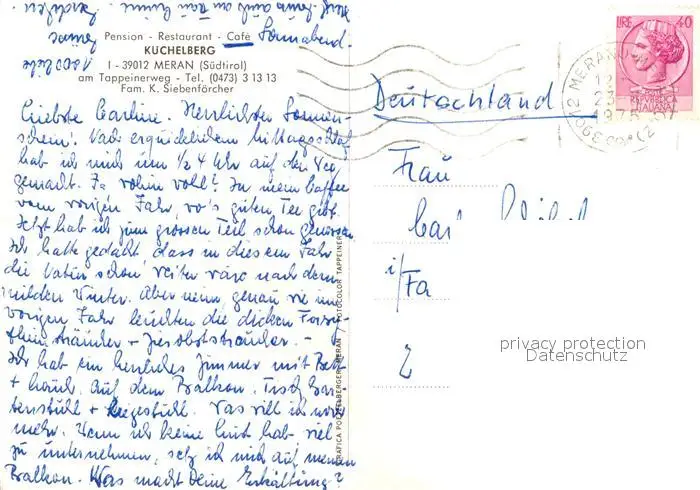 Pension - Restaurant - Café
KUCHELBERG
I - 39012 MERAN (Südtirol)
am Tappeinerweg - Tel. (0473) 3 13 13
Fam. K. Siebenförcher
Sonnabend.
Liebste Carline. Herrlichster Sonnen-
schein! Nach erquicklichem Mittagsschlaf
hab ich mich um 1/2 4 Uhr auf den Weg
gemacht. Ja wohin wohl? In mein Caffee
vom vorigen Jahr, wo's guten Tee gibt.
Jetzt hab ich zum grossen Teil schon genossen
Ich hatte gedacht, dass in diesem Jahr
die Natur schon weiter wäre nach dem
milden Winter. Aber nein, genau wie im
vorigen Jahr leuchten die dicken Forsy-
thiensträucher + Zierobststräucher. -
Ich hab ein herrliches Zimmer mit Bad
+ hands. Auf dem Balkon, Tisch Gar-
tenstuhl + Liegestuhl. Was will ich noch
mehr. Wenn ich keine Lust hab viel
zu unternehmen, setz ich mich auf meinen
Balkon. Was macht Deine Erkältung?
GRAFICA POETZELBERGER MERAN FOTOCOLOR TAPPEINER
Deutschland
Frau
i/Fa
LIRE 40
REPVBBLICA
ITALIANA
MERANO
privacy protection
Datenschutz